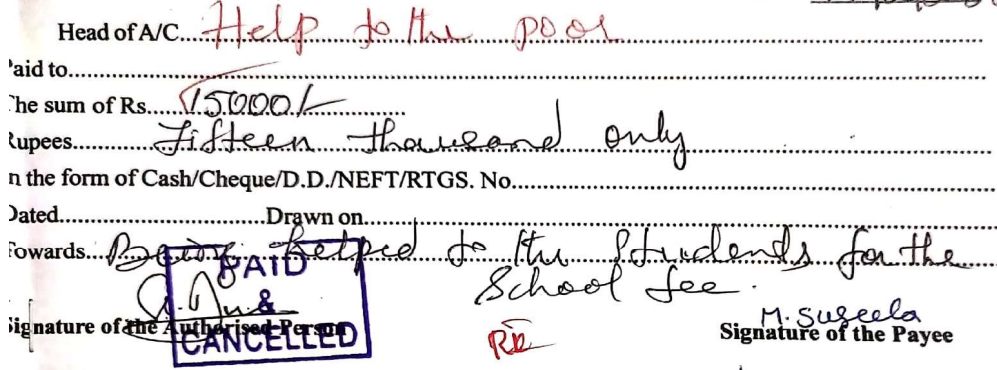 Head of A/C....Help to the poor
Paid to
The sum of Rs.....15000/-
Rupees..........Fifteen thousand only
In the form of Cash/Cheque/D.D./NEFT/RTGS. No.
Dated..............Drawn on
Towards...Being helped to the Students for the
School fee.
PAID
&
CANCELLED
M. Suseela
Signature of the Authorised Person
Signature of the Payee